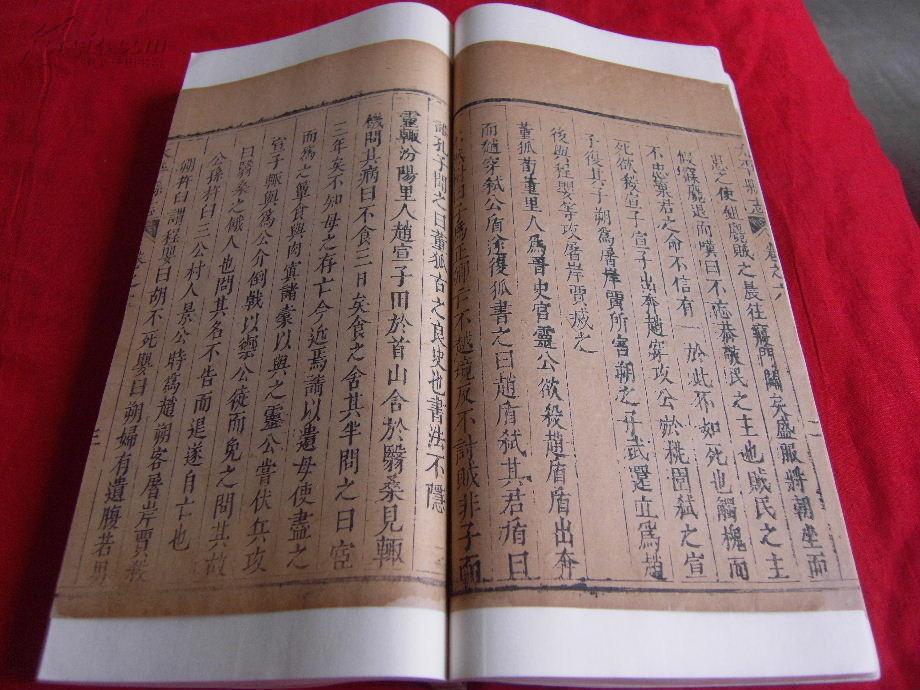 太平縣志 卷之六 二
患之使鉏麑賊之晨往寢門闢矣盛服將朝坐而
假寐麑退而嘆曰不忘恭敬民之主也賊民之主
不忠棄君之命不信有一於此不如死也觸槐而
死欲殺宣子宣子出奔趙穿攻公於桃園弒之宣
子復其子朔為屠岸賈所害朔之子武還立為趙
後與程嬰等攻屠岸賈滅之
董狐荀董里人為晉史官靈公欲殺趙盾盾出奔
而趙穿弒公盾復狐書之曰趙盾弒其君盾曰
子為正卿亡不越境反不討賊非子而
誰孔子聞之曰董狐古之良史也書法不隱
靈輒汾陽里人趙宣子田於首山舍於翳桑見輒
饑問其病曰不食三日矣食之舍其半問之曰宦
三年矣不知母之存亡今近焉請以遺母使盡之
而為之簞食與肉窴諸橐以與之靈公嘗伏兵攻
宣子輒與為公介倒戟以禦公徒而免之問其故
曰翳桑之餓人也問其名不告而退遂自亡也
公孫杵臼三公村人景公時為趙朔客屠岸賈殺
朔杵臼謂程嬰曰胡不死嬰曰朔婦有遺腹若男
三